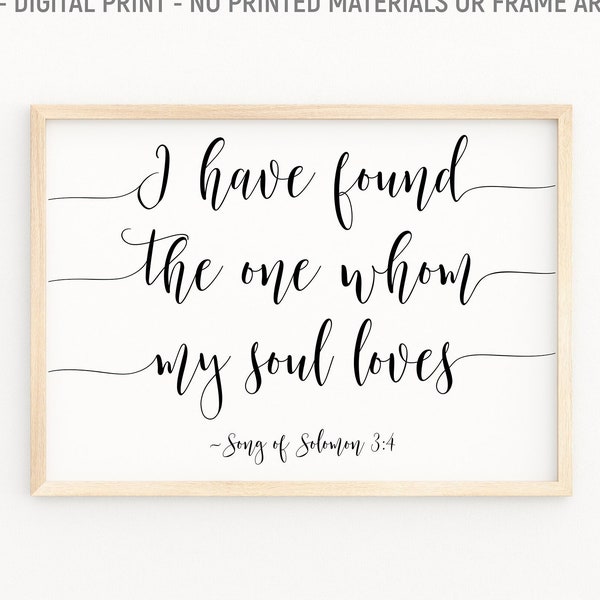 - DIGITAL PRINT - NO PRINTED MATERIALS OR FRAME AR
I have found
the one whom
my soul loves
~Song of Solomon 3:4